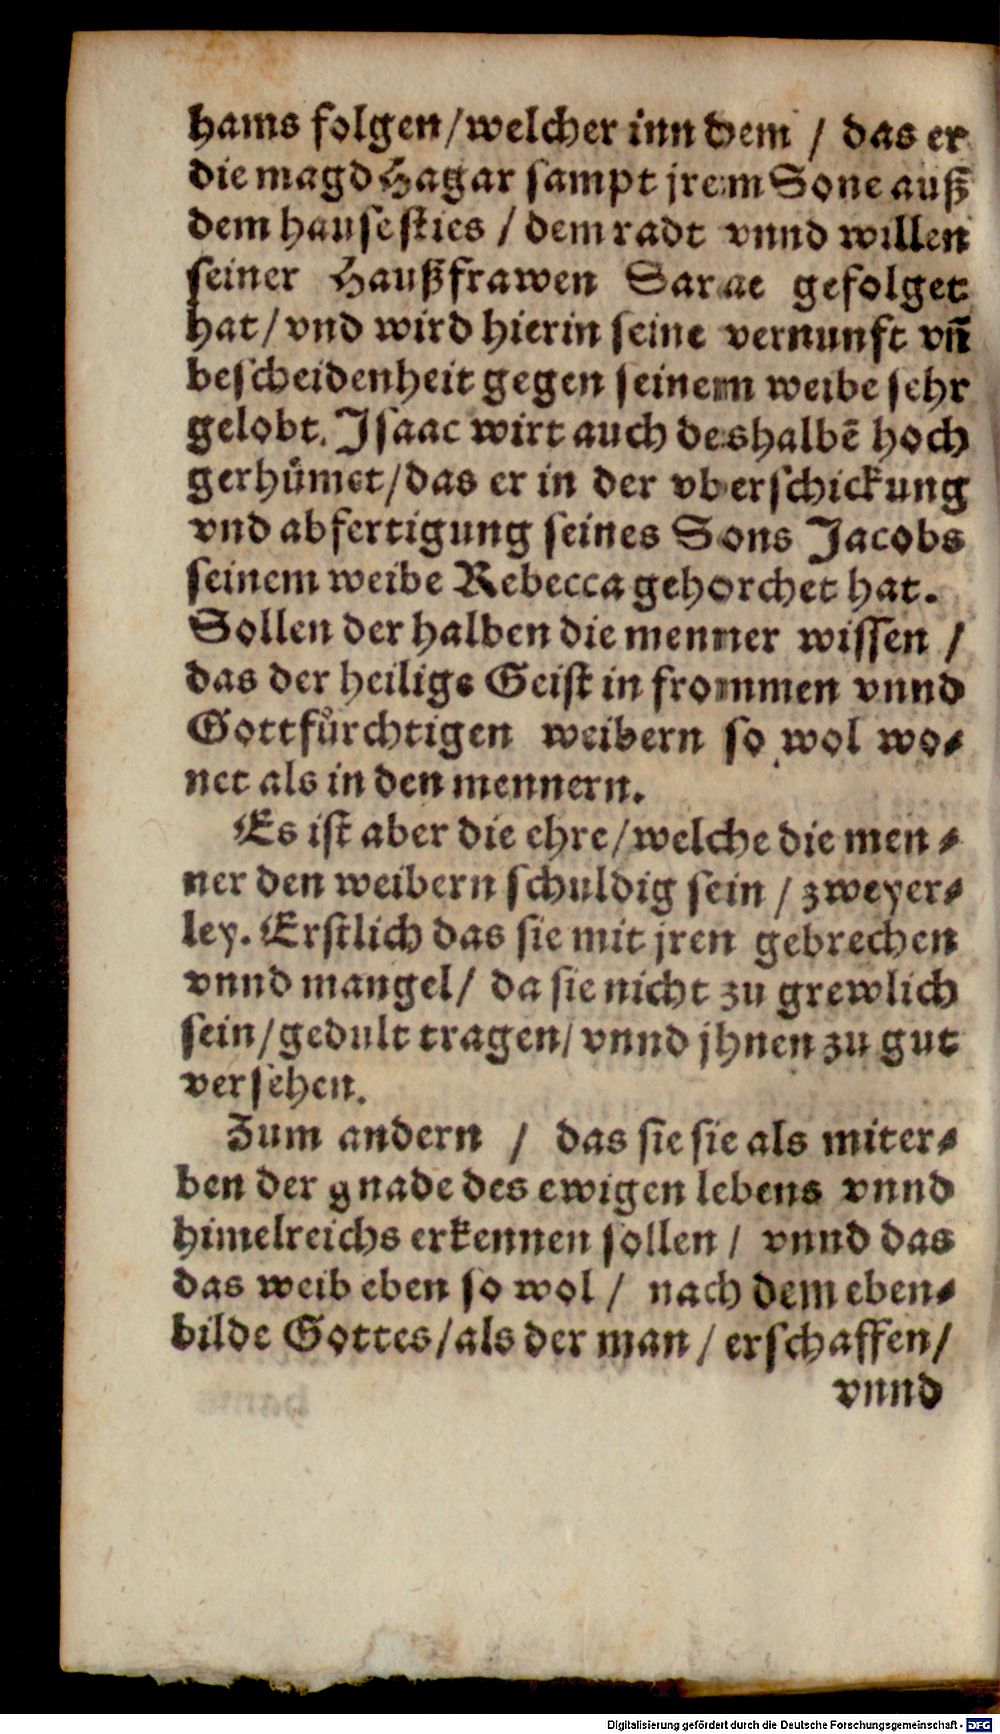 hams folgen/welcher inn dem / das er
die magd Hagar sampt jrem Sone auß
dem hause sties / dem radt vnnd willen
seiner Haußfrawen Sarae gefolget
hat/ vnd wird hierin seine vernunft vñ
bescheidenheit gegen seinem weibe sehr
gelobt. Isaac wirt auch deshalbē hoch
gerhůmet/das er in der vberschickung
vnd abfertigung seines Sons Jacobs
seinem weibe Rebecca gehorchet hat.
Sollen der halben die menner wissen /
das der heilige Geist in frommen vnnd
Gottfůrchtigen weibern so wol wo⸗
net als in den mennern.
Es ist aber die ehre/welche die men⸗
ner den weibern schuldig sein / zweyer⸗
ley. Erstlich das sie mit jren gebrechen
vnnd mangel/ da sie nicht zu grewlich
sein/gedult tragen/ vnnd jhnen zu gut
versehen.
Zum andern / das sie sie als miter⸗
ben der gnade des ewigen lebens vnnd
himelreichs erkennen sollen / vnnd das
das weib eben so wol / nach dem eben⸗
bilde Gottes/als der man / erschaffen/
vnnd
Digitalisierung gefördert durch die Deutsche Forschungsgemeinschaft - DFG